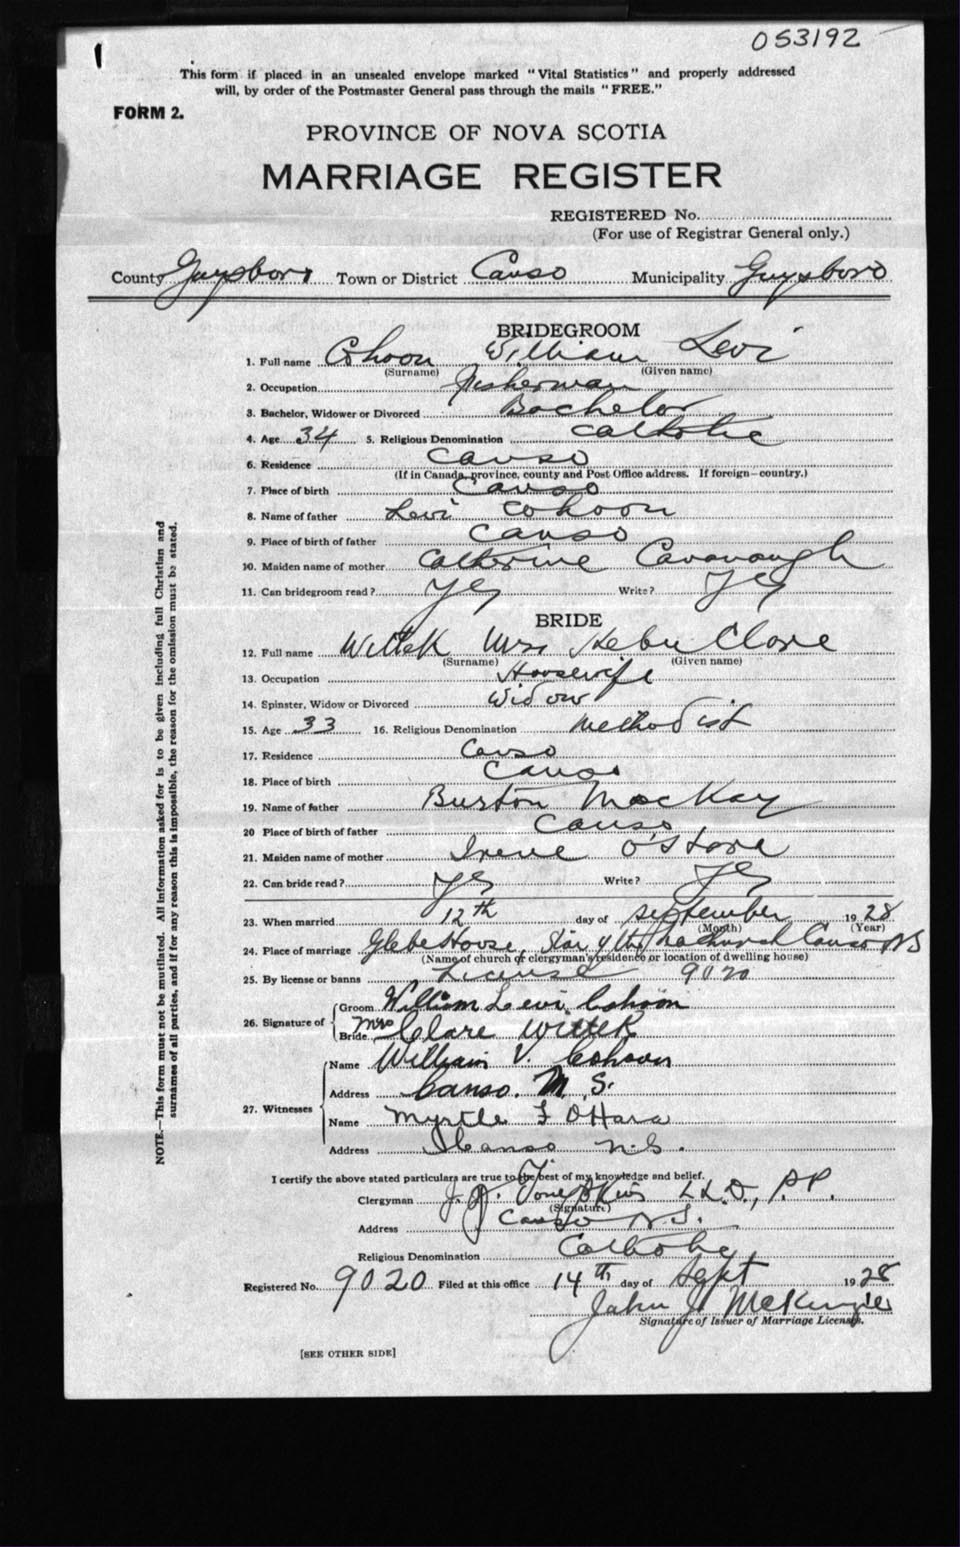 053192
This form if placed in an unsealed envelope marked "Vital Statistics" and properly addressed
will, by order of the Postmaster General pass through the mails "FREE."
FORM 2.
PROVINCE OF NOVA SCOTIA
MARRIAGE REGISTER
REGISTERED No.
(For use of Registrar General only.)
County Guysboro Town or District Canso Municipality Guysboro
BRIDEGROOM
1. Full name Cohoon William Levi
(Surname) (Given name)
2. Occupation Fisherman
3. Bachelor, Widower or Divorced Bachelor
4. Age 34 5. Religious Denomination Catholic
6. Residence Canso
(If in Canada, province, county and Post Office address. If foreign—country.)
7. Place of birth Canso
8. Name of father Levi Cohoon
9. Place of birth of father Canso
10. Maiden name of mother Catherine Cavanaugh
11. Can bridegroom read? Yes Write? Yes
BRIDE
12. Full name Wittek Mrs Clare
(Surname) (Given name)
13. Occupation Housewife
14. Spinster, Widow or Divorced Widow
15. Age 33 16. Religious Denomination Methodist
17. Residence Canso
18. Place of birth Canso
19. Name of father Burton MacKay
20 Place of birth of father Canso
21. Maiden name of mother Irene O'Hara
22. Can bride read? Yes Write? Yes
23. When married 12th day of September 1928
(Month) (Year)
24. Place of marriage Glebe House, Star of the Sea Church Canso NS
(Name of church or clergyman's residence or location of dwelling house)
25. By license or banns License 9020
26. Signature of Groom William Levi Cohoon
Bride Mrs Clare Wittek
27. Witnesses Name William V. Cohoon
Address Canso. N. S.
Name Myrtle F O'Hara
Address Canso N.S.
I certify the above stated particulars are true to the best of my knowledge and belief.
Clergyman J. J. Tompkins LL.D., P.P.
(Signature)
Address Canso N.S.
Religious Denomination Catholic
Registered No. 9020 Filed at this office 14th day of Sept 1928
John J McKenzie
Signature of Issuer of Marriage Licenses.
[SEE OTHER SIDE]
NOTE.—This form must not be mutilated. All information asked for is to be given including full Christian and
surnames of all parties, and if for any reason this is impossible, the reason for the omission must be stated.